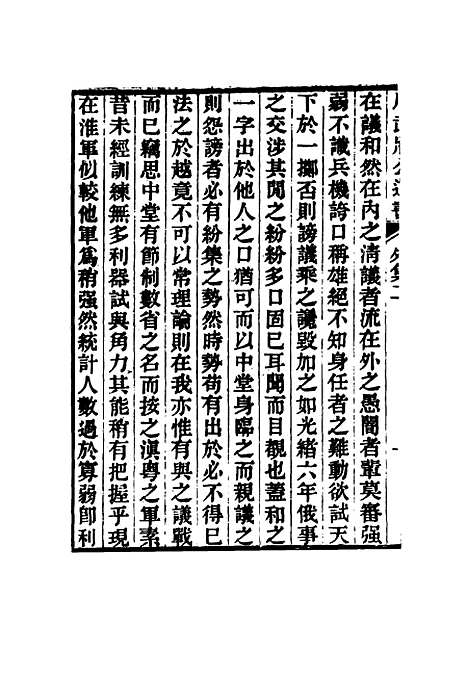 在議和然在內之清議者流在外之愚闇者輩莫審强
弱不識兵機誇口稱雄絕不知身任者之難動欲試天
下於一擲否則謗議乘之讒毀加之如光緒六年俄事
之交涉其聞之紛紛多口固已耳聞而目覩也蓋和之
一字出於他人之口猶可而以中堂身臨之而親議之
則怨謗者必有紛集之勢然時勢苟有出於必不得已
法之於越竟不可以常理論則在我亦惟有與之議戰
而已竊思中堂有節制數省之名而按之滇粵之軍素
昔未經訓練無多利器試與角力其能稍有把握乎現
在淮軍似較他軍爲稍强然統計人數過於單弱卽利